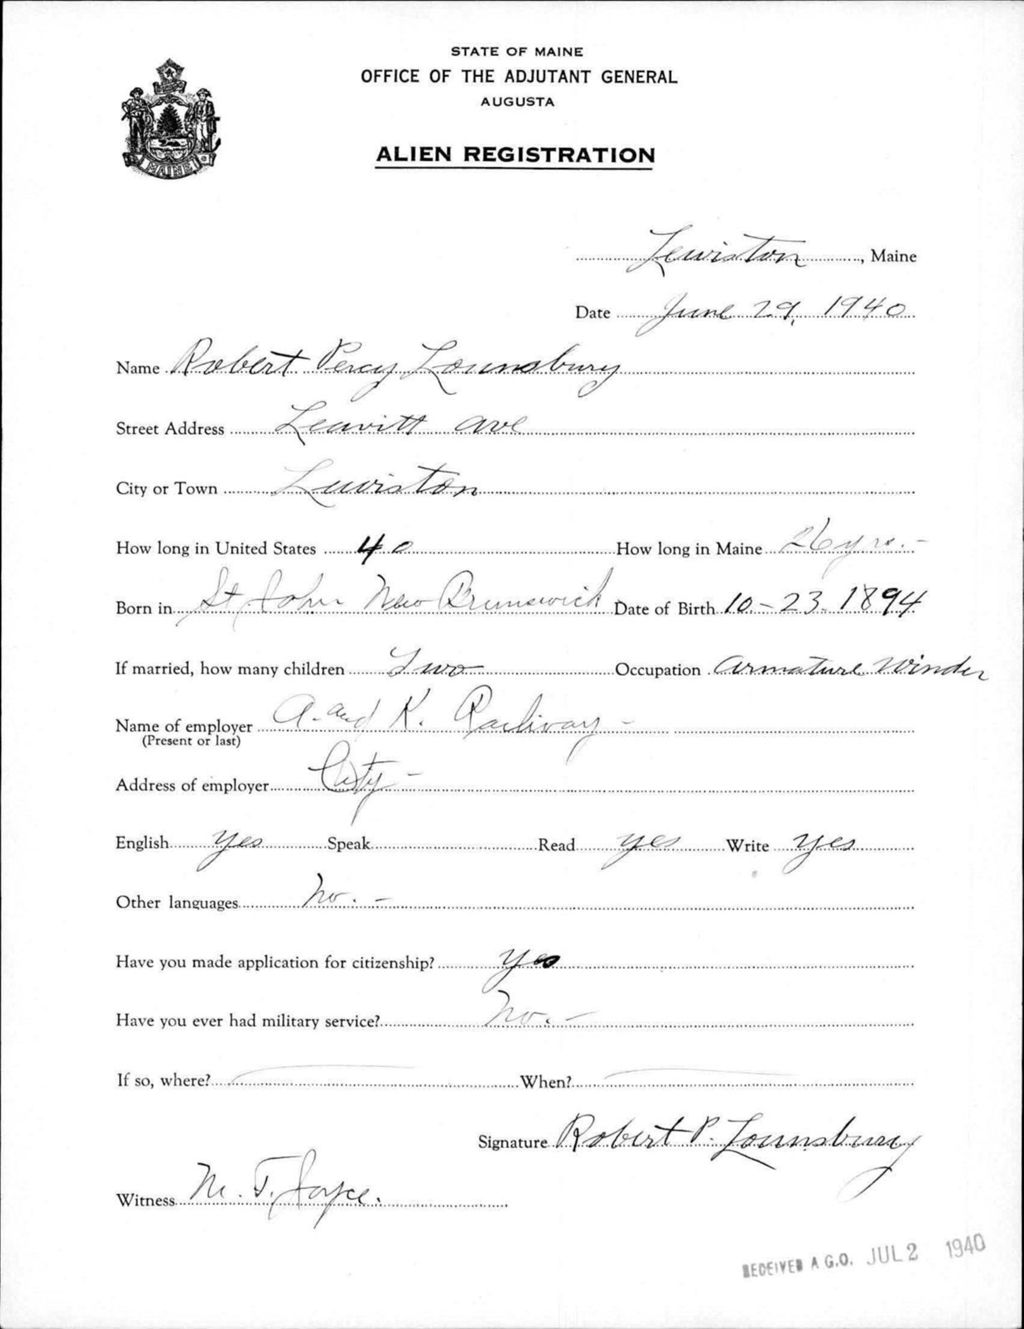 STATE OF MAINE
OFFICE OF THE ADJUTANT GENERAL
AUGUSTA
ALIEN REGISTRATION
MAINE
Lewiston, Maine
Date June 29, 1940
Name Robert Percy Lounsbury
Street Address Leavitt ave
City or Town Lewiston
How long in United States 40 How long in Maine 26 yrs. -
Born in St John New Brunswick Date of Birth 10-23-1894
If married, how many children Two Occupation Armature Winder
Name of employer A. and K. Railway -
(Present or last)
Address of employer City -
English yes Speak Read yes Write yes
Other languages No. -
Have you made application for citizenship? Yes
Have you ever had military service? No. -
If so, where? When?
Signature Robert P. Lounsbury
Witness M. T. Joyce.
RECEIVED A.G.O. JUL 2 1940